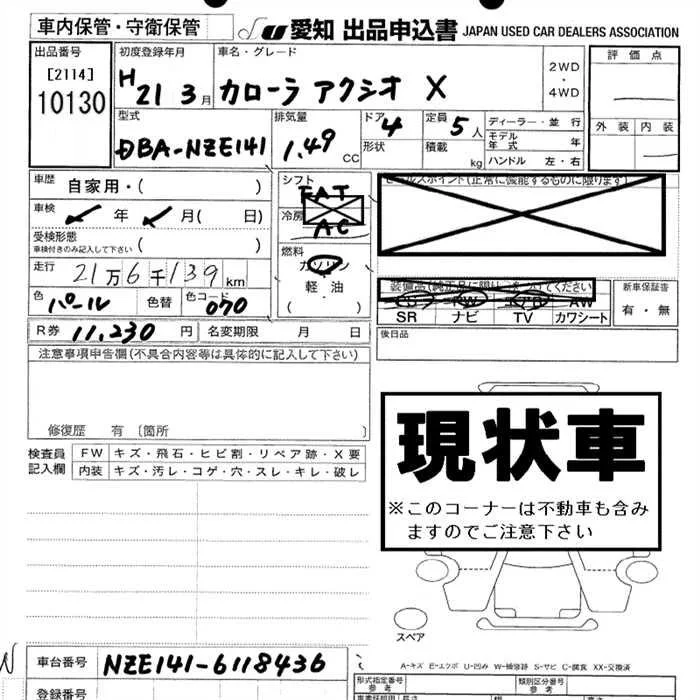 車内保管・守衛保管
JU 愛知 出品申込書 JAPAN USED CAR DEALERS ASSOCIATION
出品番号
[2114]
10130
初度登録年月
H21 3月
車名・グレード
カローラ アクシオ X
2WD
・
4WD
評価点
外装 内装
型式
DBA-NZE141
排気量
1.49 CC
ドア 4
形状
定員 5人
積載 kg
ディーラー・並 行
モデル年式 年
ハンドル 左・右
車歴 自家用・( )
車検 年 月( 日)
受検形態
車検付きのみ記入して下さい ( )
走行 21万6千139km
色 パール 色替 色コード 070
R券 11,230円 名変期限 月 日
シフト FAT
冷房 AC
燃料
ガソリン
・
軽・油
( )
セールスポイント(正常に機能するものに限ります)
装備品(純正品に限り○をつけてください)
CD PW エアB AW
SR ナビ TV カワシート
新車保証書
有・無
後日品
注意事項申告欄(不具合内容等は具体的に記入して下さい)
修復歴 有〔箇所
検査員記入欄
FW キズ・飛石・ヒビ割・リペア跡・X要
内装 キズ・汚レ・コゲ・穴・スレ・キレ・破レ
現状車
※このコーナーは不動車も含み
ますのでご注意下さい
スペア
A-キズ E-エクボ U-凹み W-補修跡 S-サビ C-腐食 XX-交換済
車台番号 NZE141-6118436
登録番号
形式指定番号
参考
類別区分番号
参考